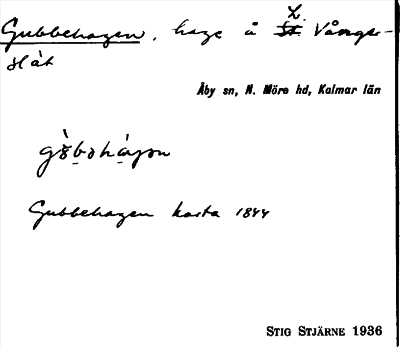 Gubbehagen, hage å L. Vångs-
slät
Åby sn, N. Möre hd, Kalmar län
Gubbehagen karta 1844
STIG STJÄRNE 1936